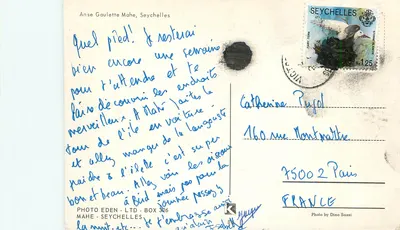 Anse Gaulette Mahe, Seychelles
Quel pied! Je resterai
bien encore une semaine
pour t'attendre et te
faire découvrir ces endroits
merveilleux. A Mahé, faites le
tour de l'île en voiture
et allez manger de la langouste
à l'islette c'est super
bon et beau. Allez voir les oiseaux
à Bird mais pas pour la
journée passez y
la nuit, etc... je t'embrasse
PHOTO EDEN - LTD - BOX
MAHE - SEYCHELLES
SEYCHELLES
1.25
VICTO
Catherine Pujol
160 rue Montmartre
75002 Paris
FRANCE
Photo by Dino Sassi